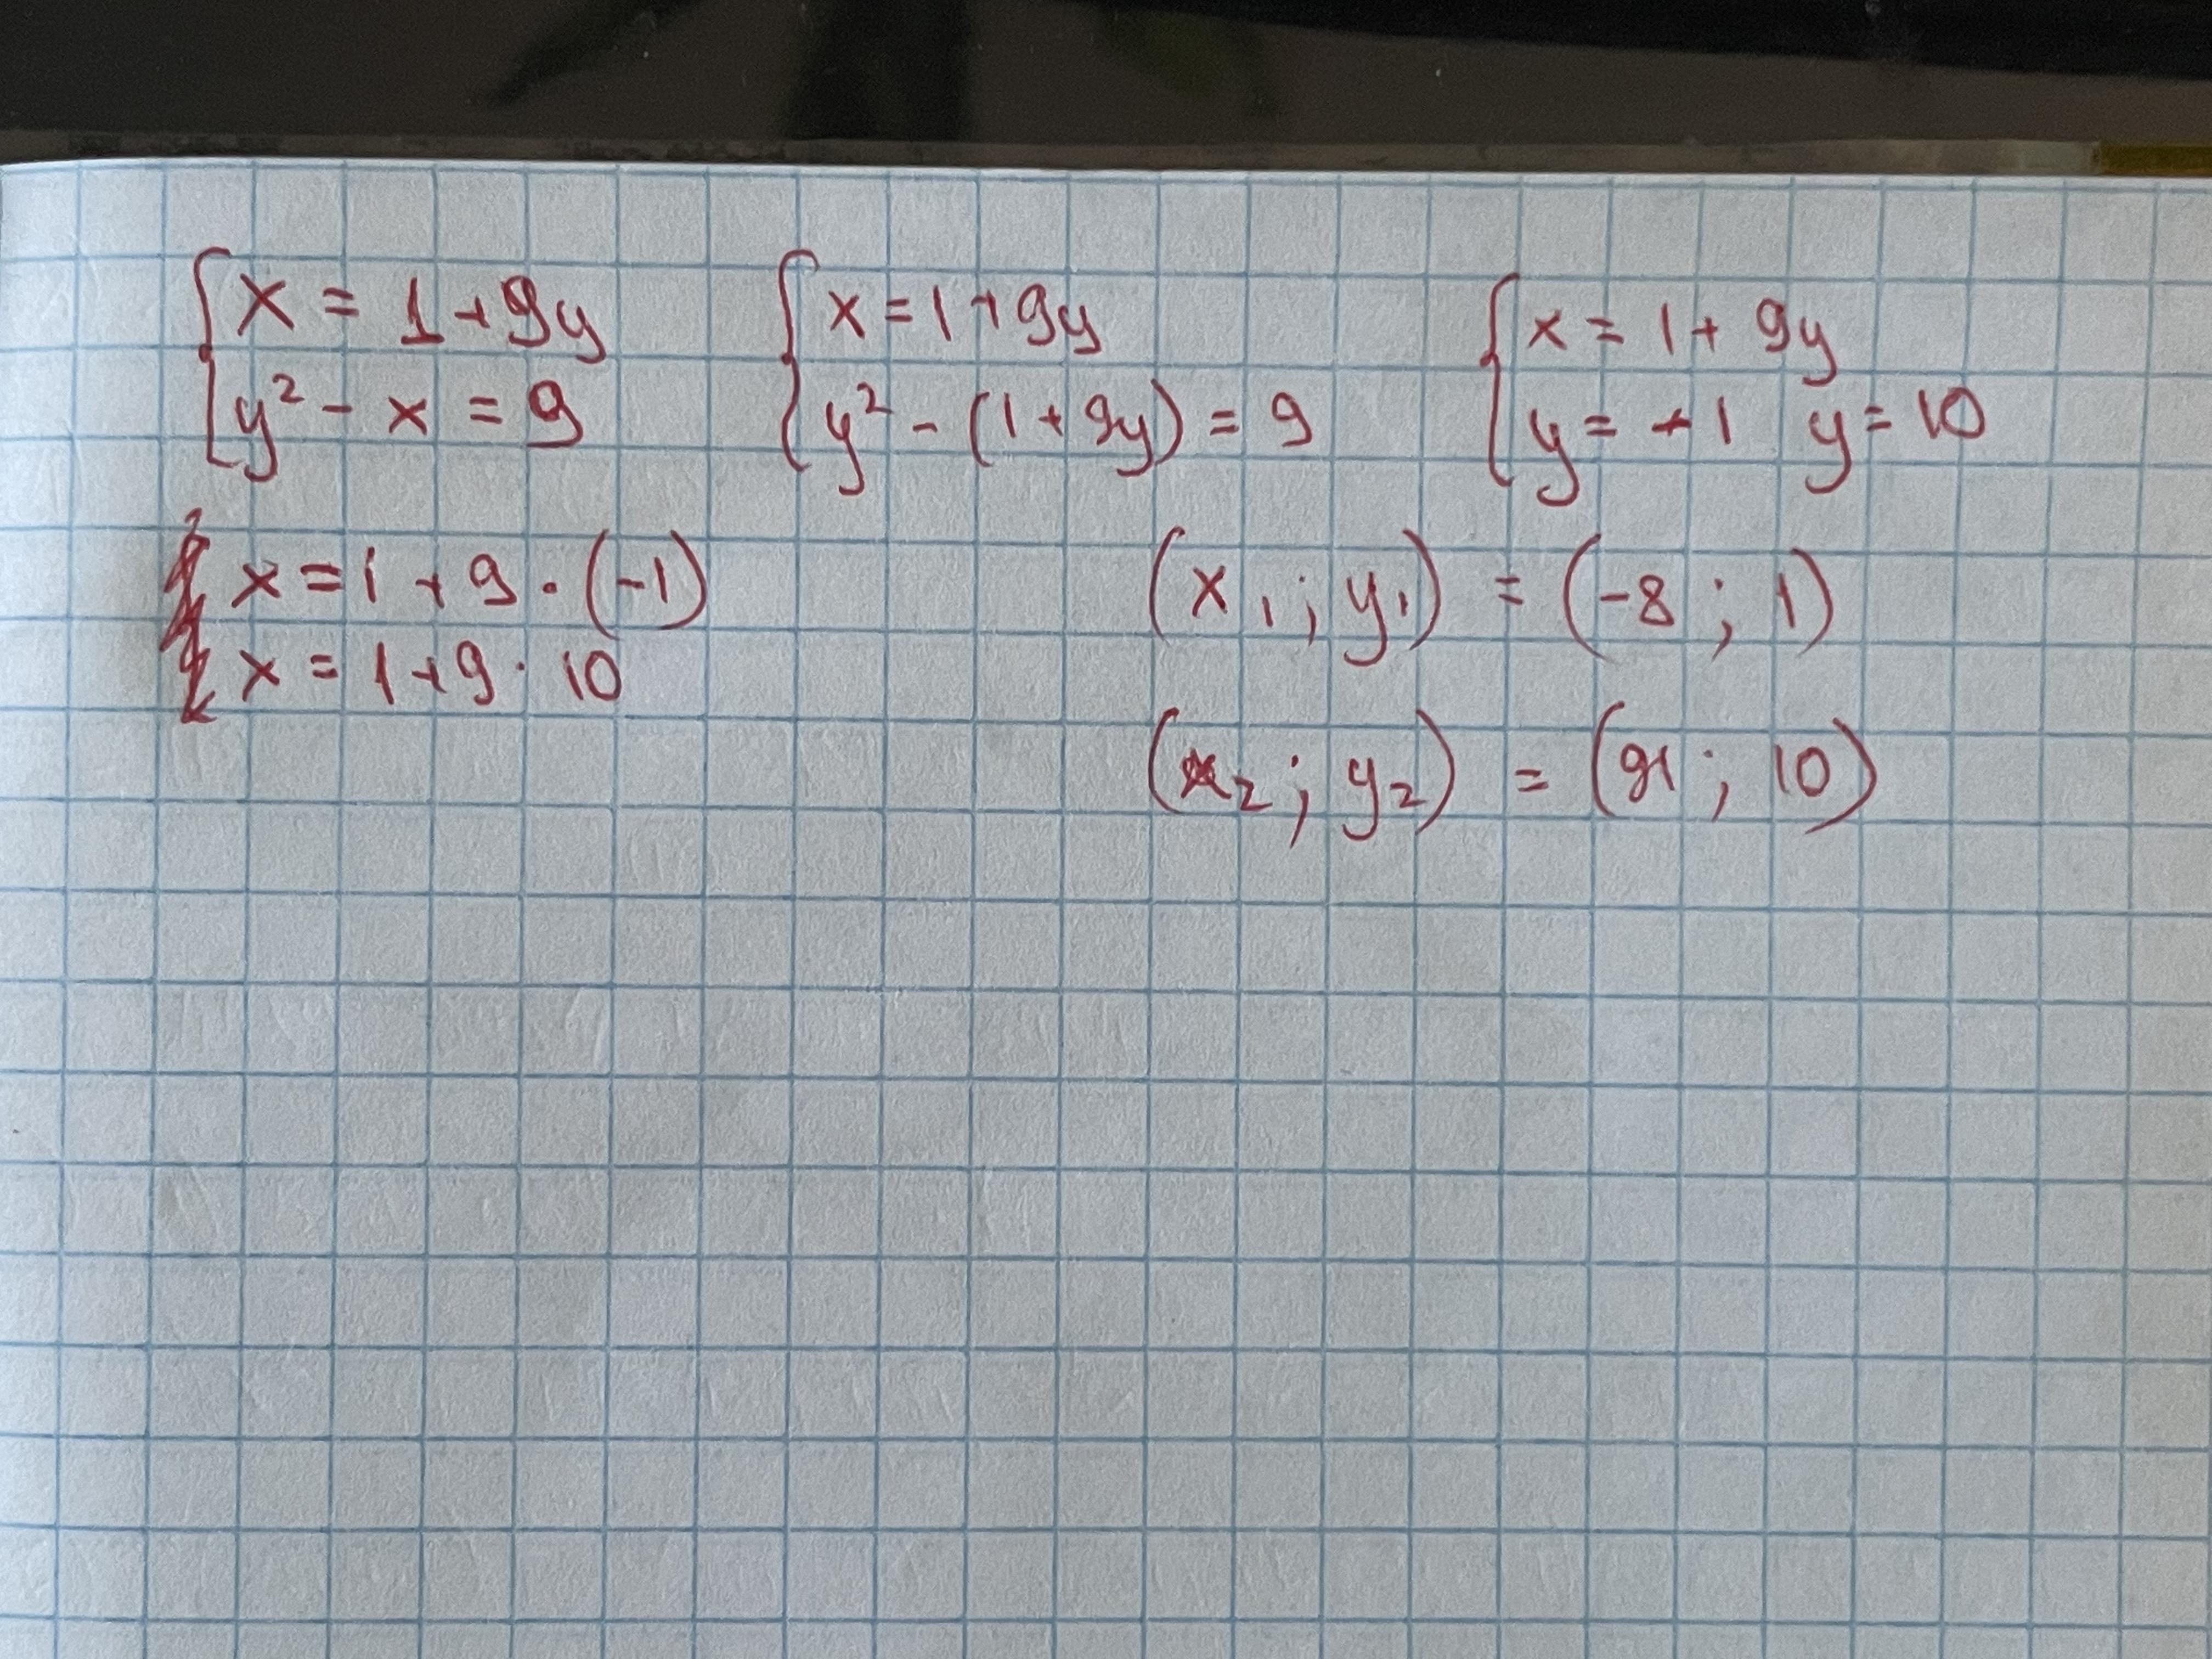 x = 1 + 9y
y² - x = 9
x = 1 + 9y
y² - (1 + 9y) = 9
x = 1 + 9y
y = -1 y = 10
x = 1 + 9 · (-1)
x = 1 + 9 · 10
(x₁ ; y₁) = (-8 ; 1)
(x₂ ; y₂) = (91 ; 10)